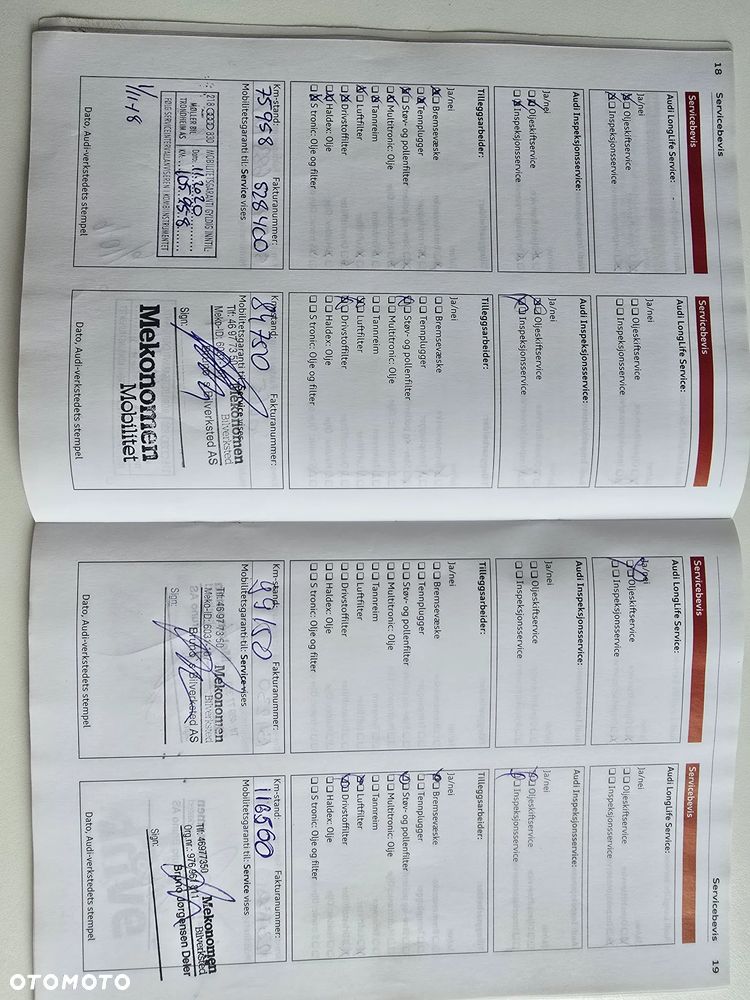 18 Servicebevis
Servicebevis
Audi LongLife Service:
Ja/nei
Oljeskiftservice
Inspeksjonsservice
Audi Inspeksjonsservice:
Ja/nei
Oljeskiftservice
Inspeksjonsservice
Tilleggsarbeider:
Ja/nei
Bremsevæske
Tennplugger
Støv- og pollenfilter
Multitronic: Olje
Tannreim
Luftfilter
Drivstoffilter
Haldex: Olje
S tronic: Olje og filter
Km-stand: Fakturanummer:
75958 578400
Mobilitetsgaranti til: Service vises
MOBILITETSGARANTI GYLDIG INNTIL
MØLLER BIL
TRONDHEIM AS
Dato: 11.2020
KM: 105.958
FØLG SERVICEINTERVALLANVISEREN I KOMBIINSTRUMENTET
1/11-18
Dato, Audi-verkstedets stempel
Servicebevis
Audi LongLife Service:
Ja/nei
Oljeskiftservice
Inspeksjonsservice
Audi Inspeksjonsservice:
Ja/nei
Oljeskiftservice
Inspeksjonsservice
Tilleggsarbeider:
Ja/nei
Bremsevæske
Tennplugger
Støv- og pollenfilter
Multitronic: Olje
Tannreim
Luftfilter
Drivstoffilter
Haldex: Olje
S tronic: Olje og filter
Km-stand: Fakturanummer:
84750
Mobilitetsgaranti til: Service vises
Mekonomen
Bilverksted
Tlf: 46 97 73 50
Bilverksted AS
Sign:
Mekonomen
Mobilitet
Dato, Audi-verkstedets stempel
Servicebevis 19
Servicebevis
Audi LongLife Service:
Ja/nei
Oljeskiftservice
Inspeksjonsservice
Audi Inspeksjonsservice:
Ja/nei
Oljeskiftservice
Inspeksjonsservice
Tilleggsarbeider:
Ja/nei
Bremsevæske
Tennplugger
Støv- og pollenfilter
Multitronic: Olje
Tannreim
Luftfilter
Drivstoffilter
Haldex: Olje
S tronic: Olje og filter
Km-stand: Fakturanummer:
99150
Mobilitetsgaranti til: Service vises
Mekonomen
Bilverksted
Tlf: 46 97 73 50
Bilverksted AS
Sign:
Dato, Audi-verkstedets stempel
Servicebevis
Audi LongLife Service:
Ja/nei
Oljeskiftservice
Inspeksjonsservice
Audi Inspeksjonsservice:
Ja/nei
Oljeskiftservice
Inspeksjonsservice
Tilleggsarbeider:
Ja/nei
Bremsevæske
Tennplugger
Støv- og pollenfilter
Multitronic: Olje
Tannreim
Luftfilter
Drivstoffilter
Haldex: Olje
S tronic: Olje og filter
Km-stand: Fakturanummer:
116500
Mobilitetsgaranti til: Service vises
Mekonomen
Bilverksted
Tlf: 46977350
Bruno Jørgensen Deler
Sign:
Dato, Audi-verkstedets stempel
OTOMOTO